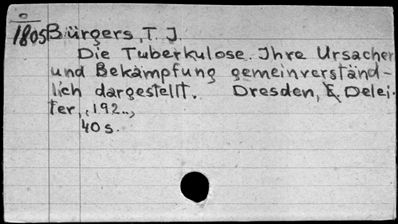 1805 Bürgers T. J.
Die Tuberkulose. Ihre Ursachen
und Bekämpfung gemeinverständ-
lich dargestellt. Dresden, E. Delei-
ter, 192..,
40 s.